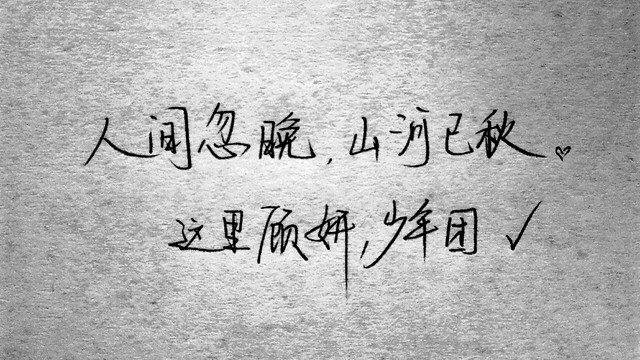 人间忽晚，山河已秋。♡
这里顾妍，少年团 ✓